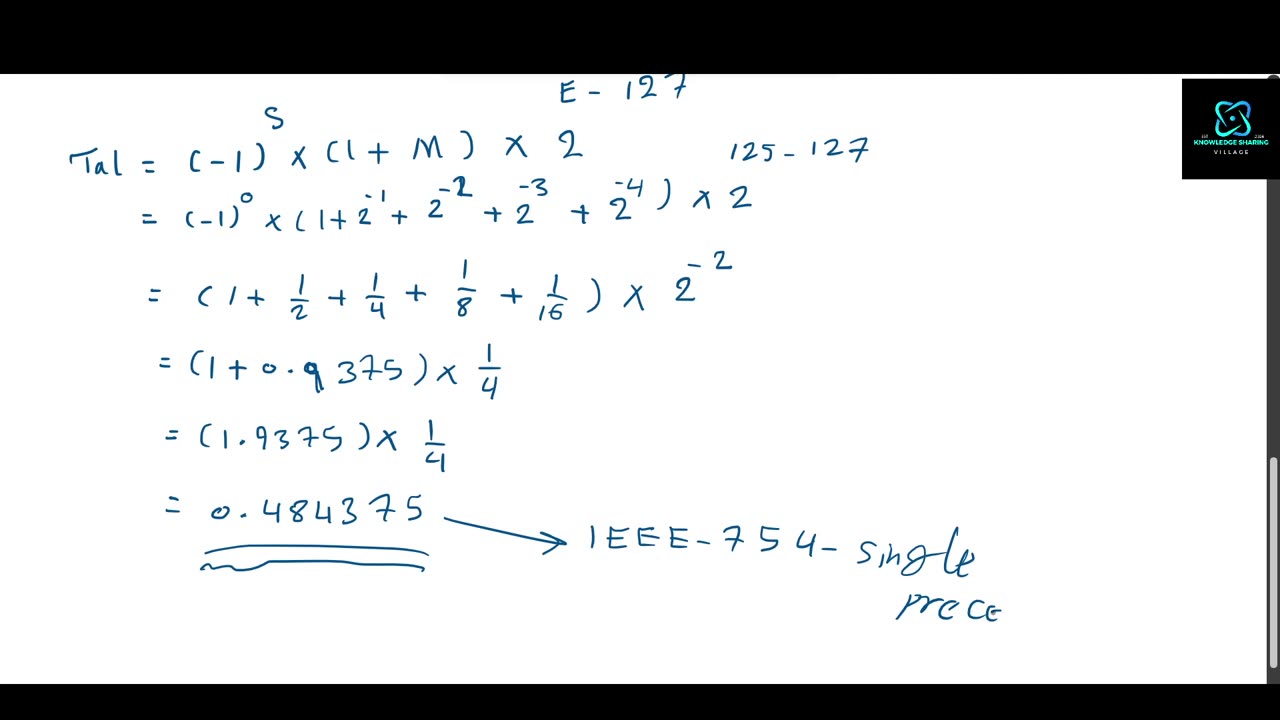 E - 127
S
Tal = (-1) × (1 + M) × 2
125 - 127
= (-1)⁰ × (1 + 2⁻¹ + 2⁻² + 2⁻³ + 2⁻⁴) × 2
= (1 + 1/2 + 1/4 + 1/8 + 1/16) × 2⁻²
= (1 + 0.9375) × 1/4
= (1.9375) × 1/4
= 0.484375 → IEEE-754-single
prece
KNOWLEDGE SHARING
VILLAGE